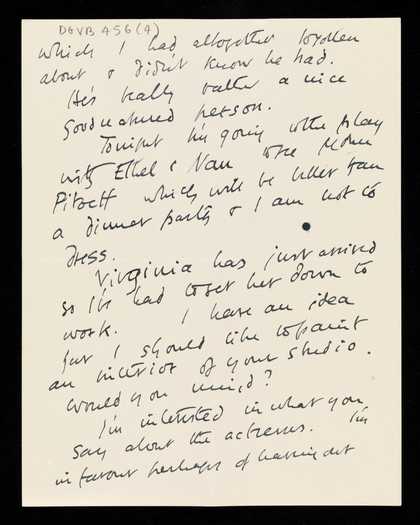 DGVB 456 (A)
which I had altogether forgotten
about & didn't know he had.
He's really rather a nice
goodnatured person.
Tonight I'm going to the play
with Ethel & Nan to see Mdme
Pitoeff which will be better than
a dinner party & I am not to
dress.
Virginia has just arrived
so I've had to set her down to
work. I have an idea
that I should like to paint
an interior of your studio.
Would you mind?
I'm interested in what you
say about the actresses. I'm
in favour perhaps of leaving out